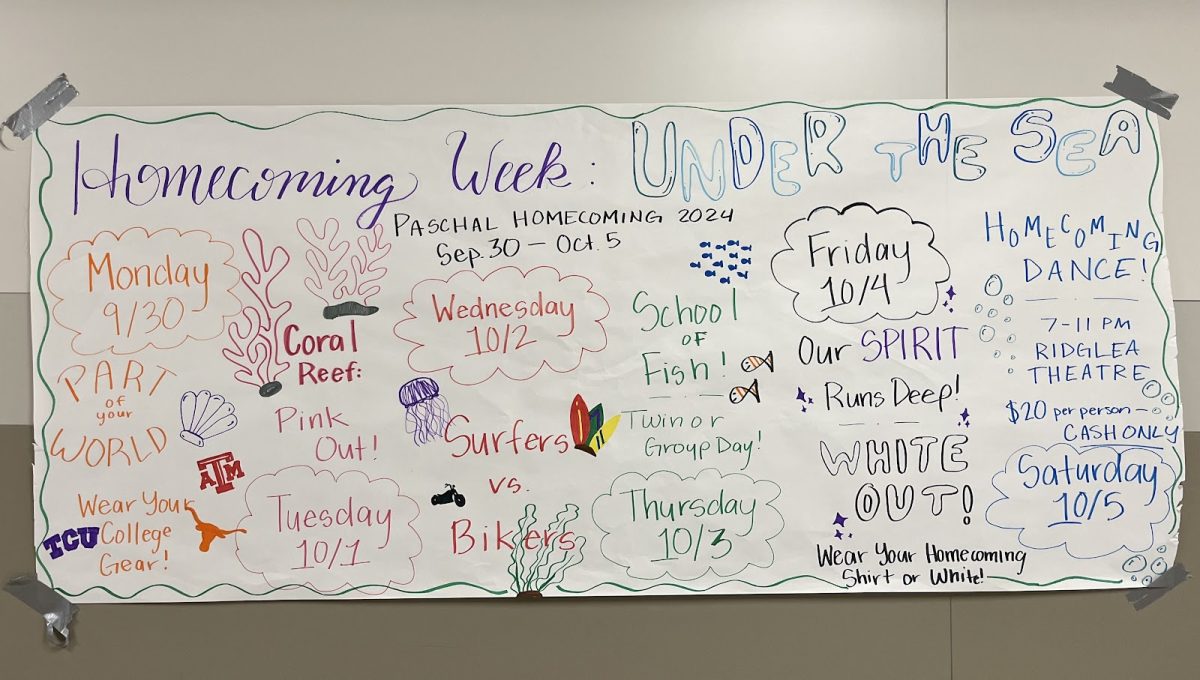 Homecoming Week: UNDER THE SEA
PASCHAL HOMECOMING 2024
Sep. 30 – Oct. 5
Monday
9/30
PART
of
your
WORLD
Wear Your
College
Gear!
TCU
ATM
Coral
Reef:
Pink
Out!
Tuesday
10/1
Wednesday
10/2
Surfers
vs.
Bikers
School
OF
Fish!
Twin or
Group Day!
Thursday
10/3
Friday
10/4
Our SPIRIT
Runs Deep!
WHITE
OUT!
Wear Your Homecoming
Shirt or White!
HOMECOMING
DANCE!
7-11 PM
RIDGLEA
THEATRE
$20 per person –
CASH ONLY
Saturday
10/5